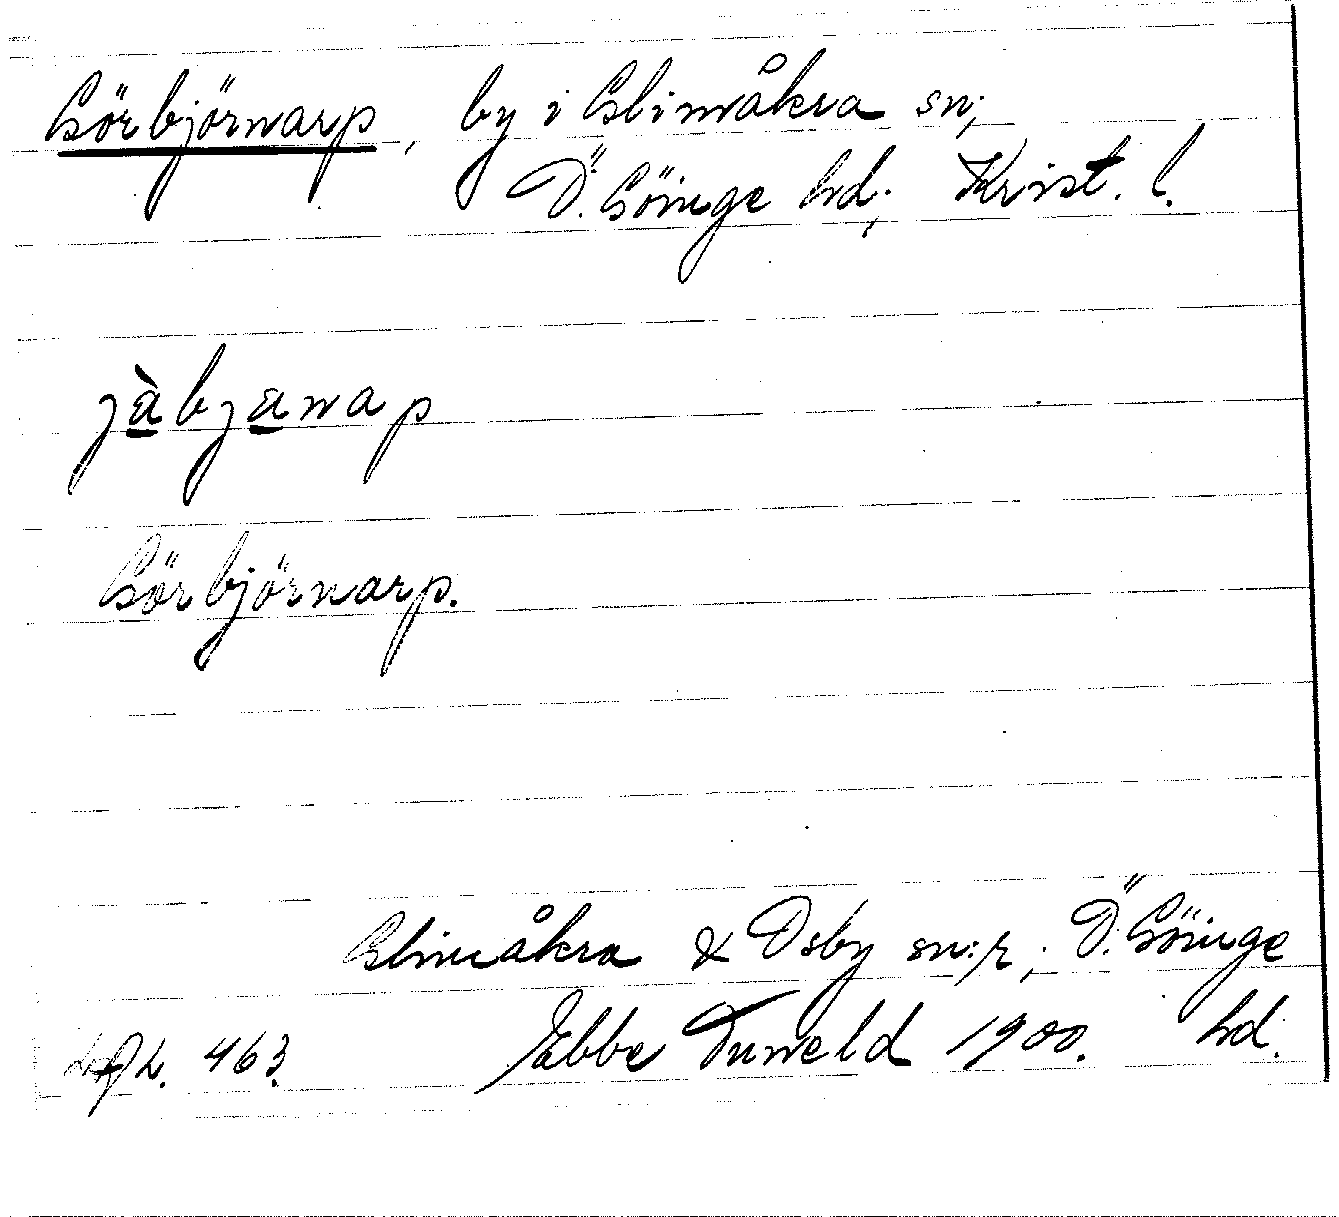 Görbjörnarp, by i Glimåkra sn,
Ö. Göinge hd, Krist. l.
jàbjanap
Görbjörnarp.
Glimåkra & Osby sn:r, Ö. Göinge
463. Ebbe Tuneld 1900. hd.